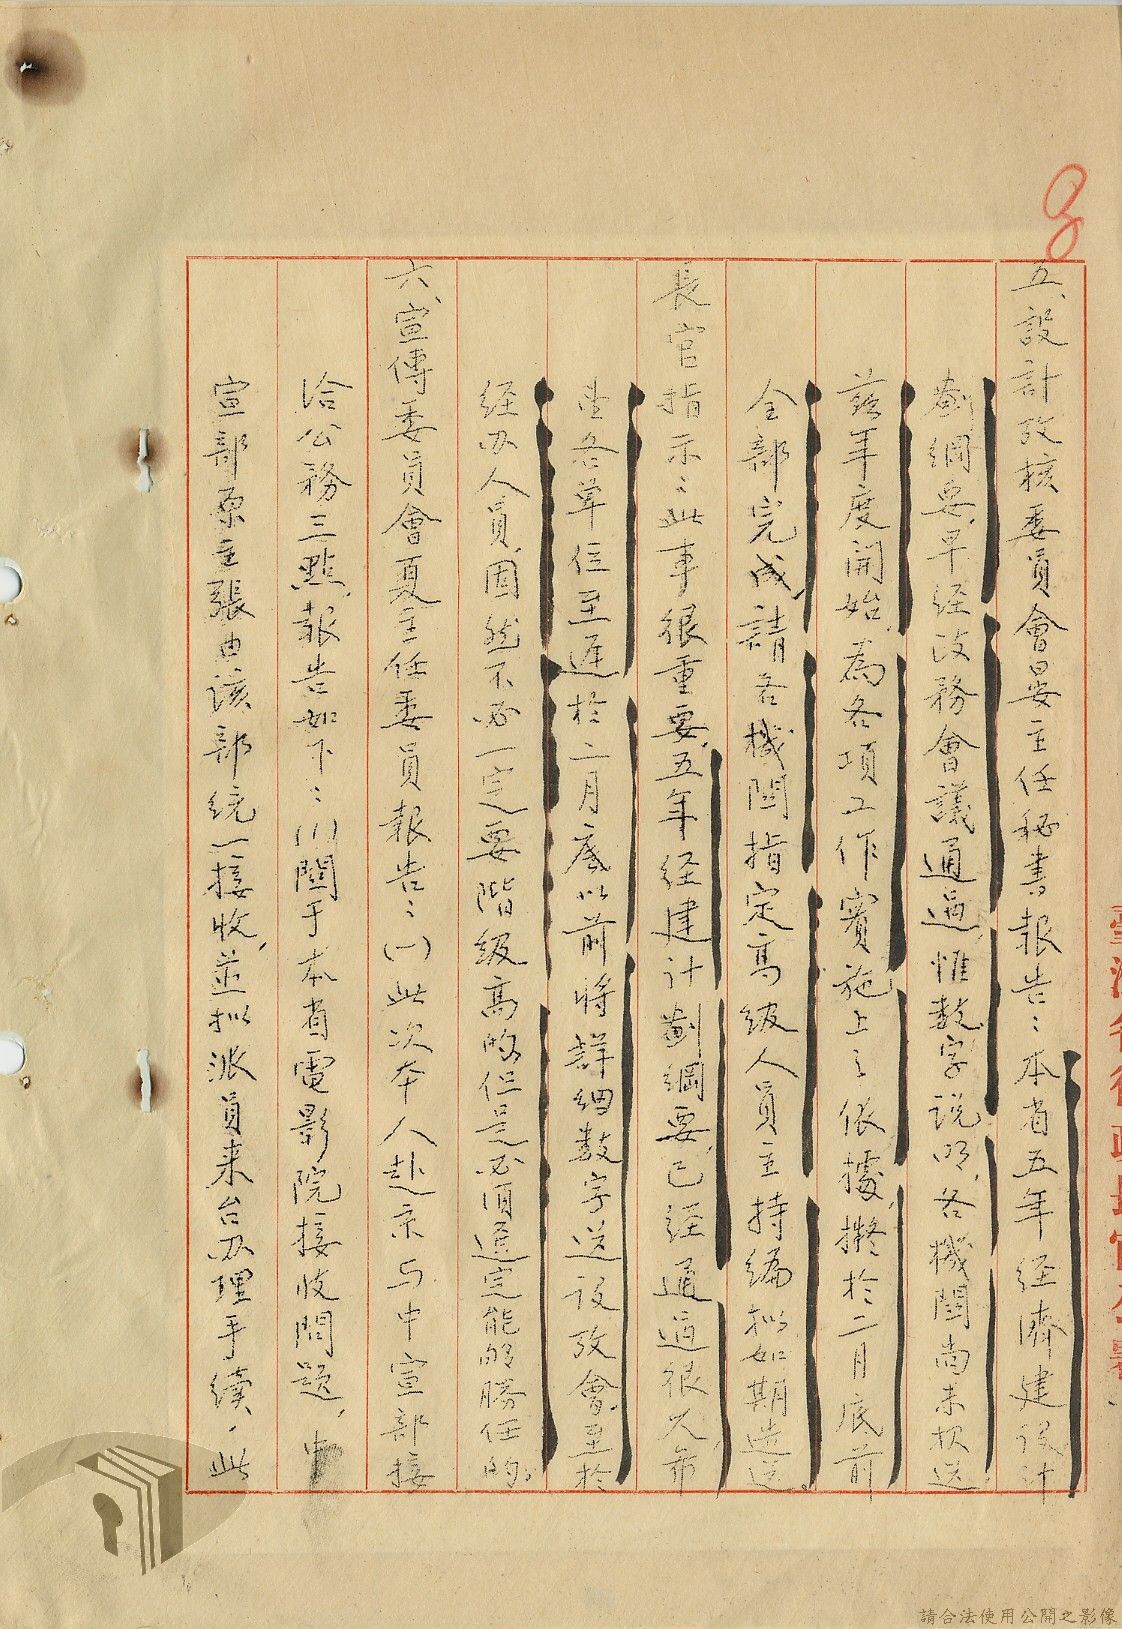 8
五、設計攷核委員會晏主任秘書報告：本省五年经濟建设计
劃綱要，早经政務會議通過，惟数字说明，各機関尚未扱送
茲年度開始，為各項工作實施上之依據，擬於二月底前
全部完成，請各機関指定高級人員主持編拟如期造送。
長官指示：此事很重要，五年经建计劃綱要，已经通過很久，希
望各单位至遲於二月底以前將詳細数字送设攷會，至於
经办人員，固然不必一定要階級高的，但是必須選定能夠勝任的。
六、宣傳委員會夏主任委員報告：(一)此次本人赴京与中宣部接
洽公務三點，報告如下：(1)関于本省電影院接收問題，中
宣部原主張由该部统一接收，並拟派員来台办理手續，此
臺灣省行政長官公署
請合法使用公開之影像